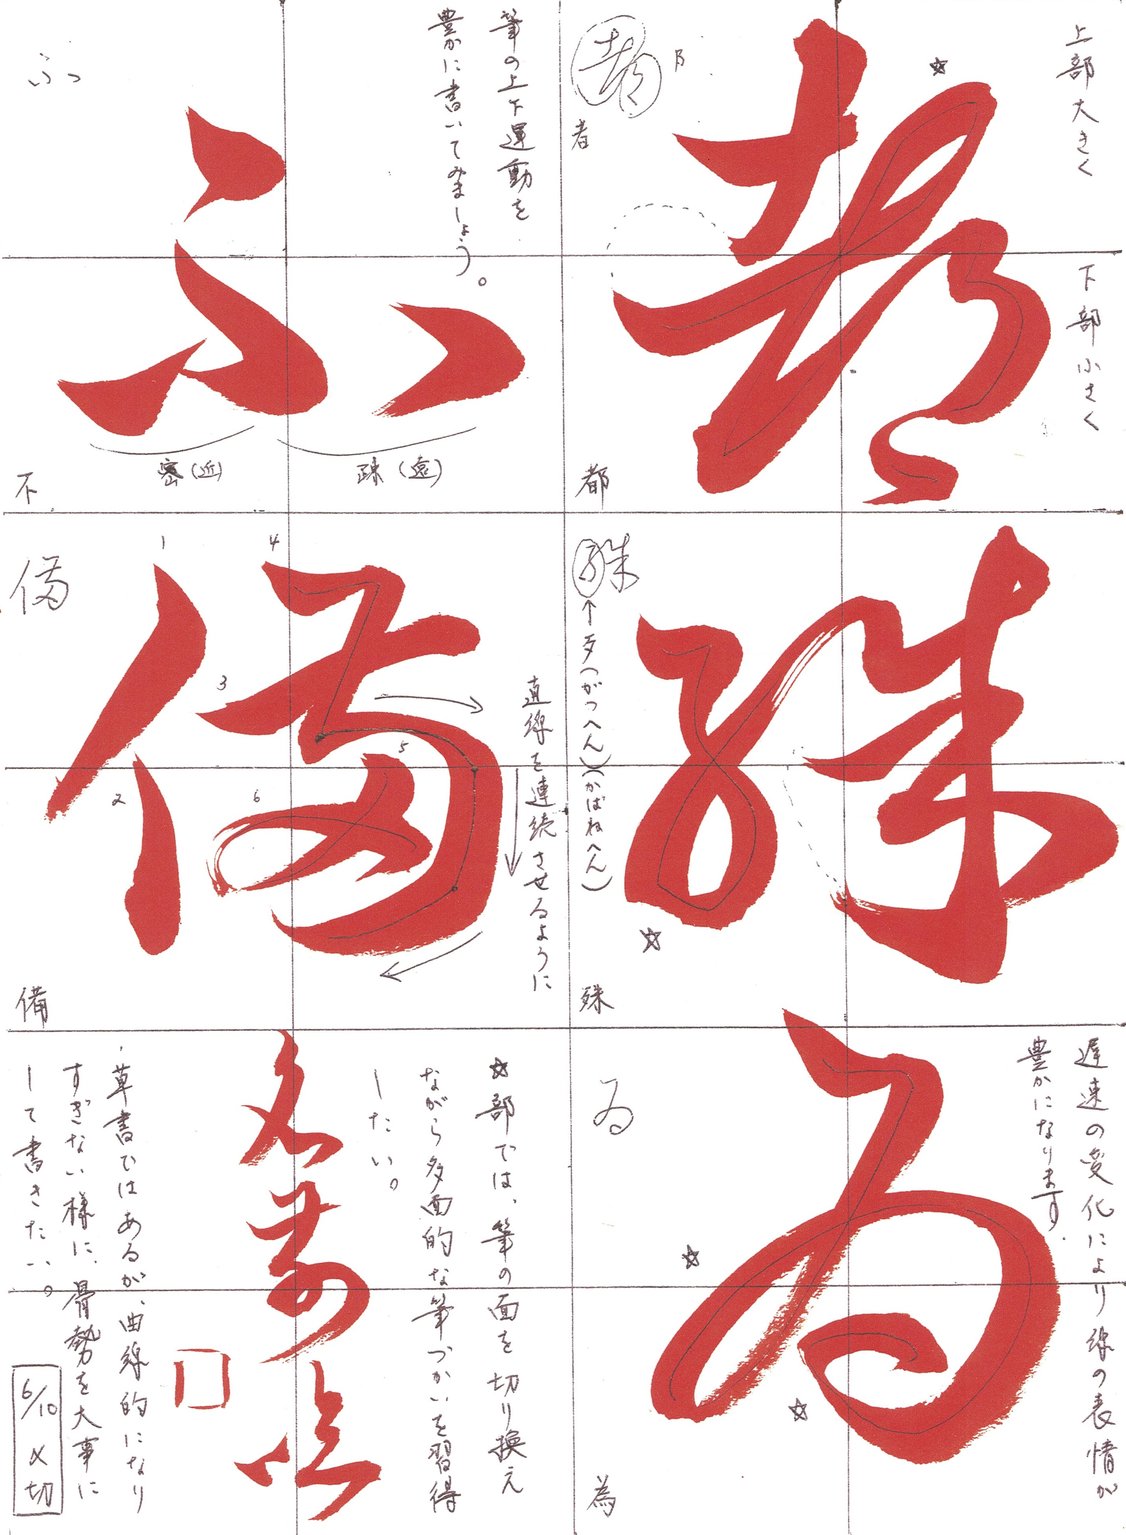 上部大きく
下部小さく
都
者
阝
者
都
殊
殊
歹(がつへん)(かばねへん)
殊
遅速の変化により線の表情が
豊かになります。
為
為
為
筆の上下運動を
豊かに書いてみましょう。
不
ふっ
密(近)
疎(遠)
不
備
備
1
2
3
4
5
6
直線を連続させるように
備
☆部では、筆の面を切り換え
ながら多面的な筆づかいを習得
したい。
・草書ではあるが、曲線的になり
すぎない様に、骨勢を大事に
して書きたい。
6/10〆切